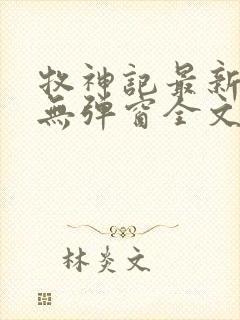 牧神記最新
無彈窗全文
林炎文